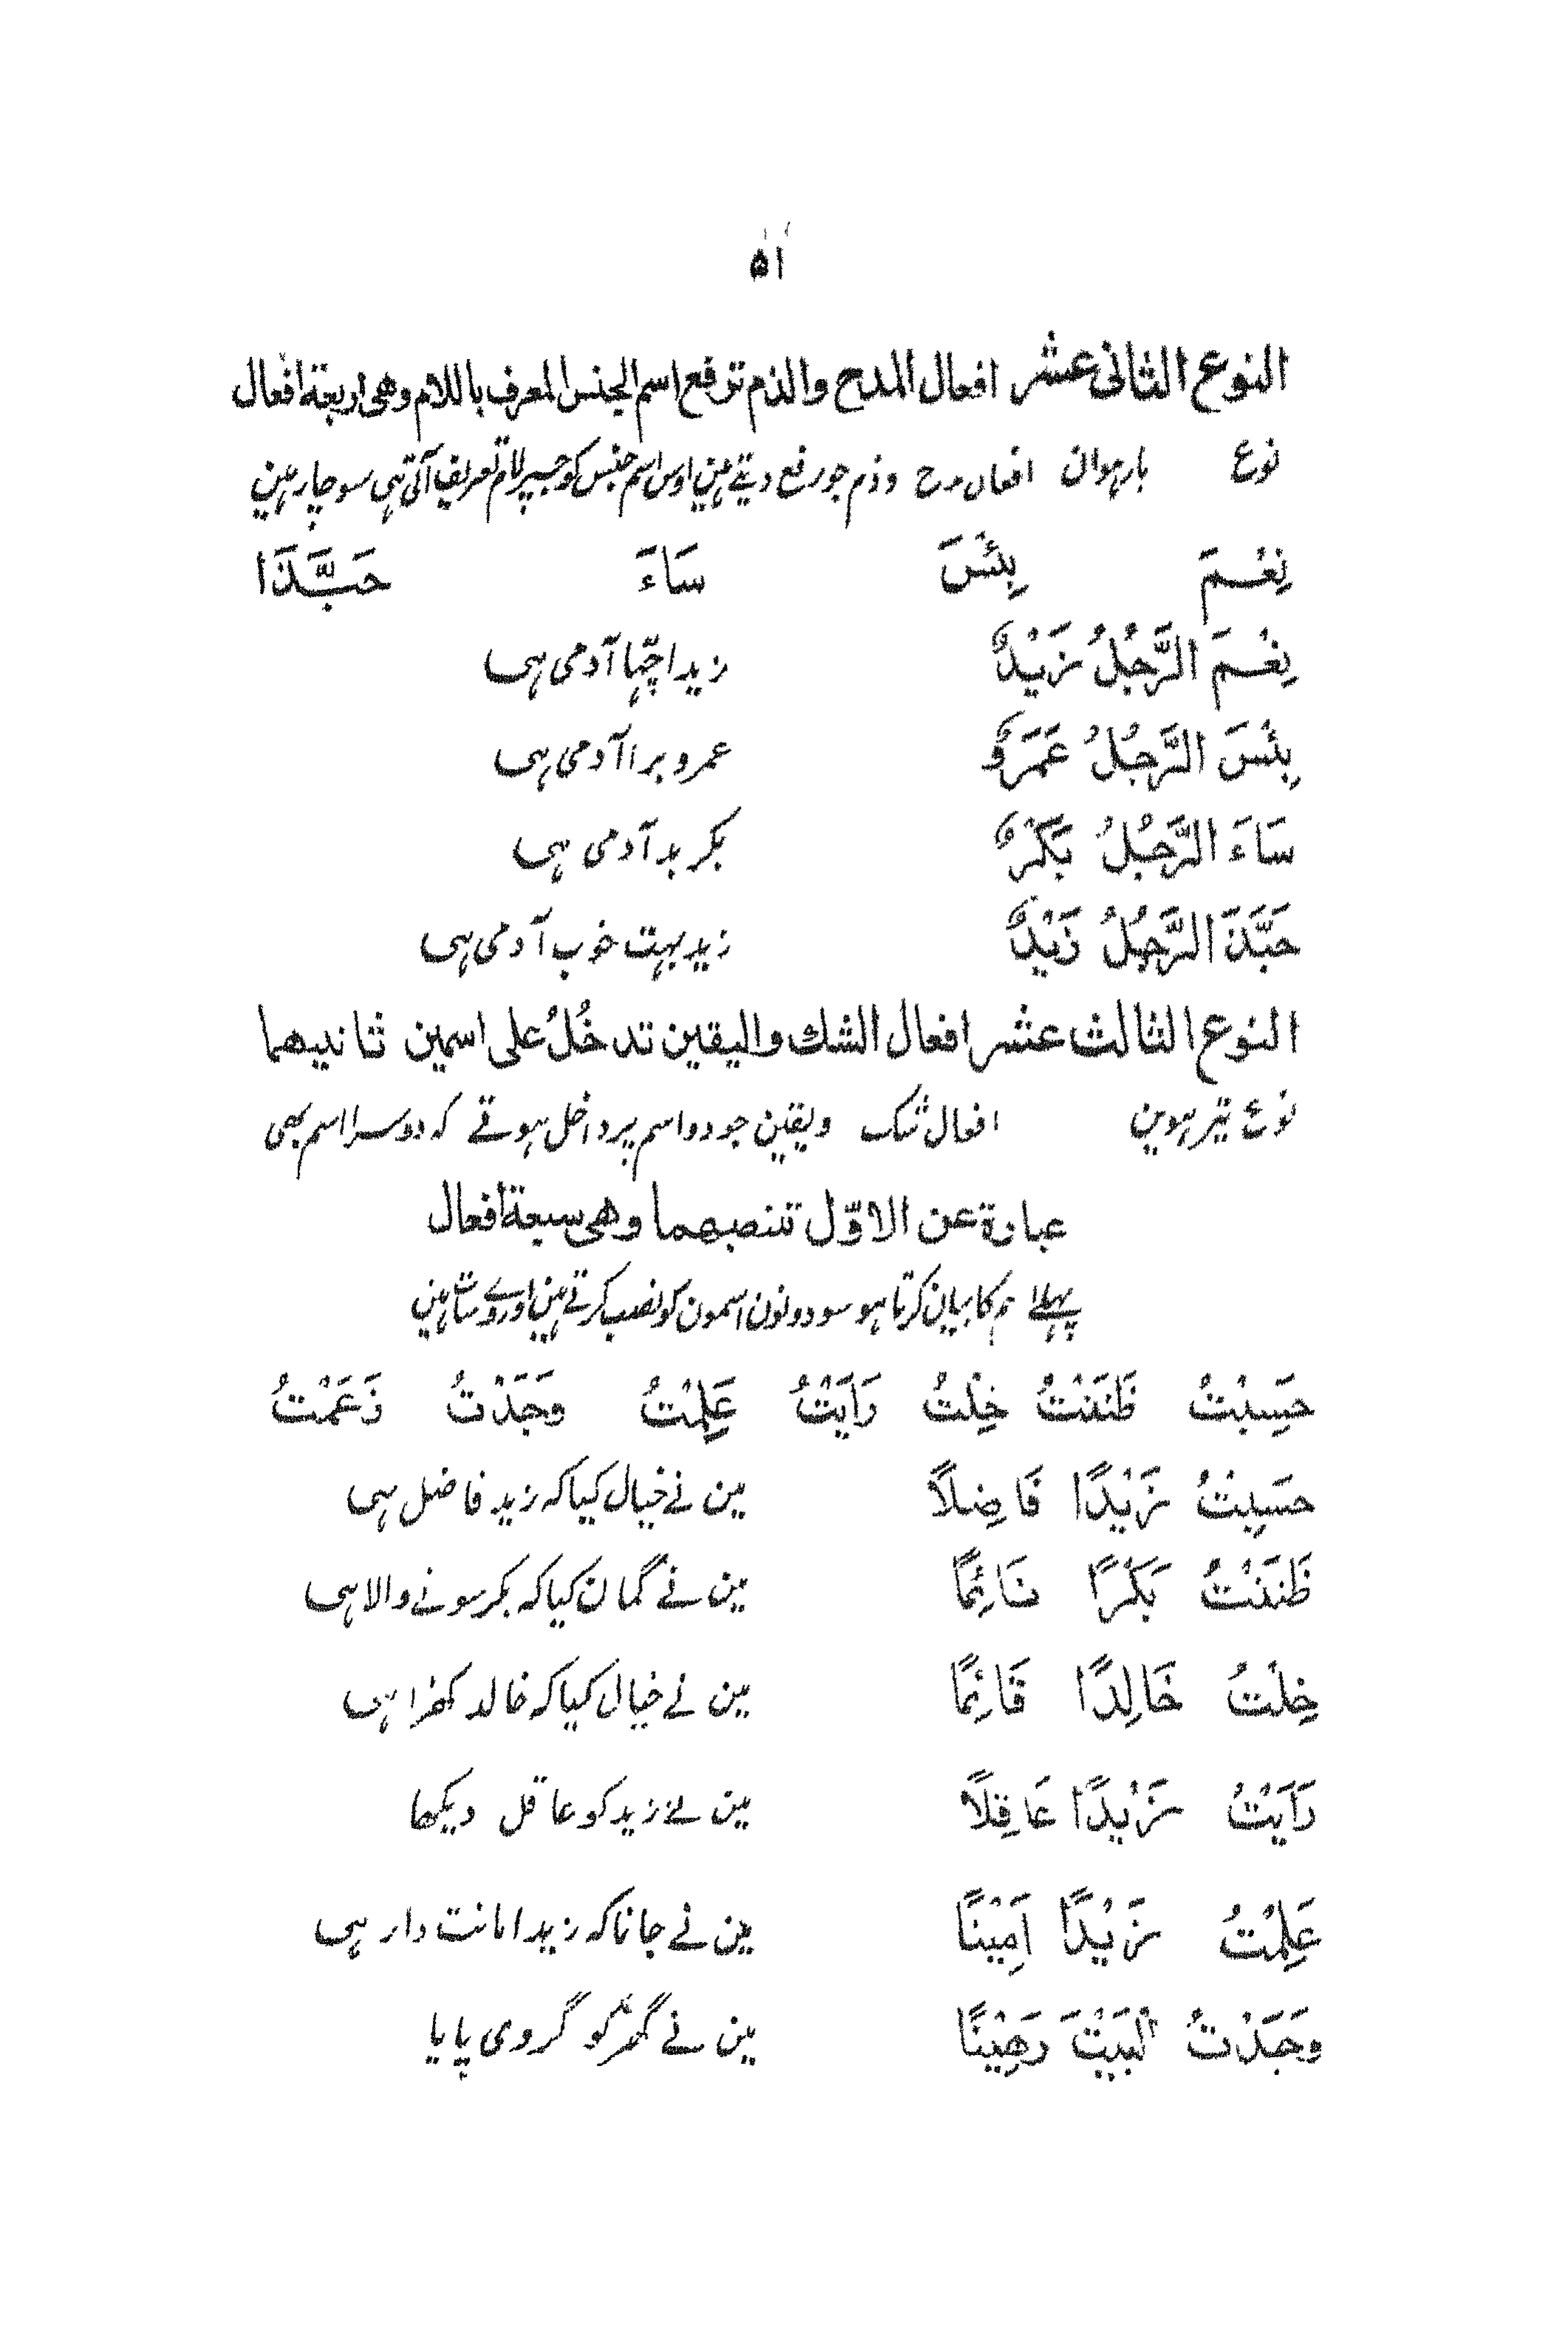 ۵۱
النوع الثانی عشر افعال المدح والذم ترفع اسم الجنس المعرف باللام وهی اربعة افعال
نوع بارہوان افعال مدح وذم جو رفع دیتے ہین اوس اسم جنس کو جسپر لام تعریف آتی ہی سو چار ہین
نِعْمَ بِئْسَ سَاءَ حَبَّذَا
نِعْمَ الرَّجُلُ زَیْدٌ زید اچّہا آدمی ہی
بِئْسَ الرَّجُلُ عَمَرٌو عمرو برا آدمی ہی
سَاءَ الرَّجُلُ بَکَرٌ بکر بد آدمی ہی
حَبَّذَ الرَّجُلُ زَیْدٌ زید بہت خوب آدمی ہی
النوع الثالث عشر افعال الشك والیقین تدخُلُ علی اسمین ثانیهما
نوع تیرہوین افعال شک ویقین جو دو اسم پر داخل ہوتے کہ دوسرا اسم بھی
عبارة عن الاوّل تنصبهما وهی سبعة افعال
پہلے کا بیان کرتا ہو سو دونون اسمون کو نصب کرتے ہین اور وے سات ہین
حَسِبْتُ ظَنَنْتُ خِلْتُ رَاَیْتُ عَلِمْتُ وَجَدْتُ زَعَمْتُ
حَسِبْتُ زَیْدًا فَاضِلًا مین نے خیال کیا کہ زید فاضل ہی
ظَنَنْتُ بَکْرًا نَائِمًا مین نے گمان کیا کہ بکر سونے والا ہی
خِلْتُ خَالِدًا قَائِمًا مین نے خیال کیا کہ خالد کھڑا ہی
رَاَیْتُ زَیْدًا عَاقِلًا مین نے زید کو عاقل دیکھا
عَلِمْتُ زَیْدًا اَمِیْنًا مین نے جانا کہ زید امانت دار ہی
وَجَدْتُ الْبَیْتَ رَهِیْنًا مین نے گھر کو گروی پایا